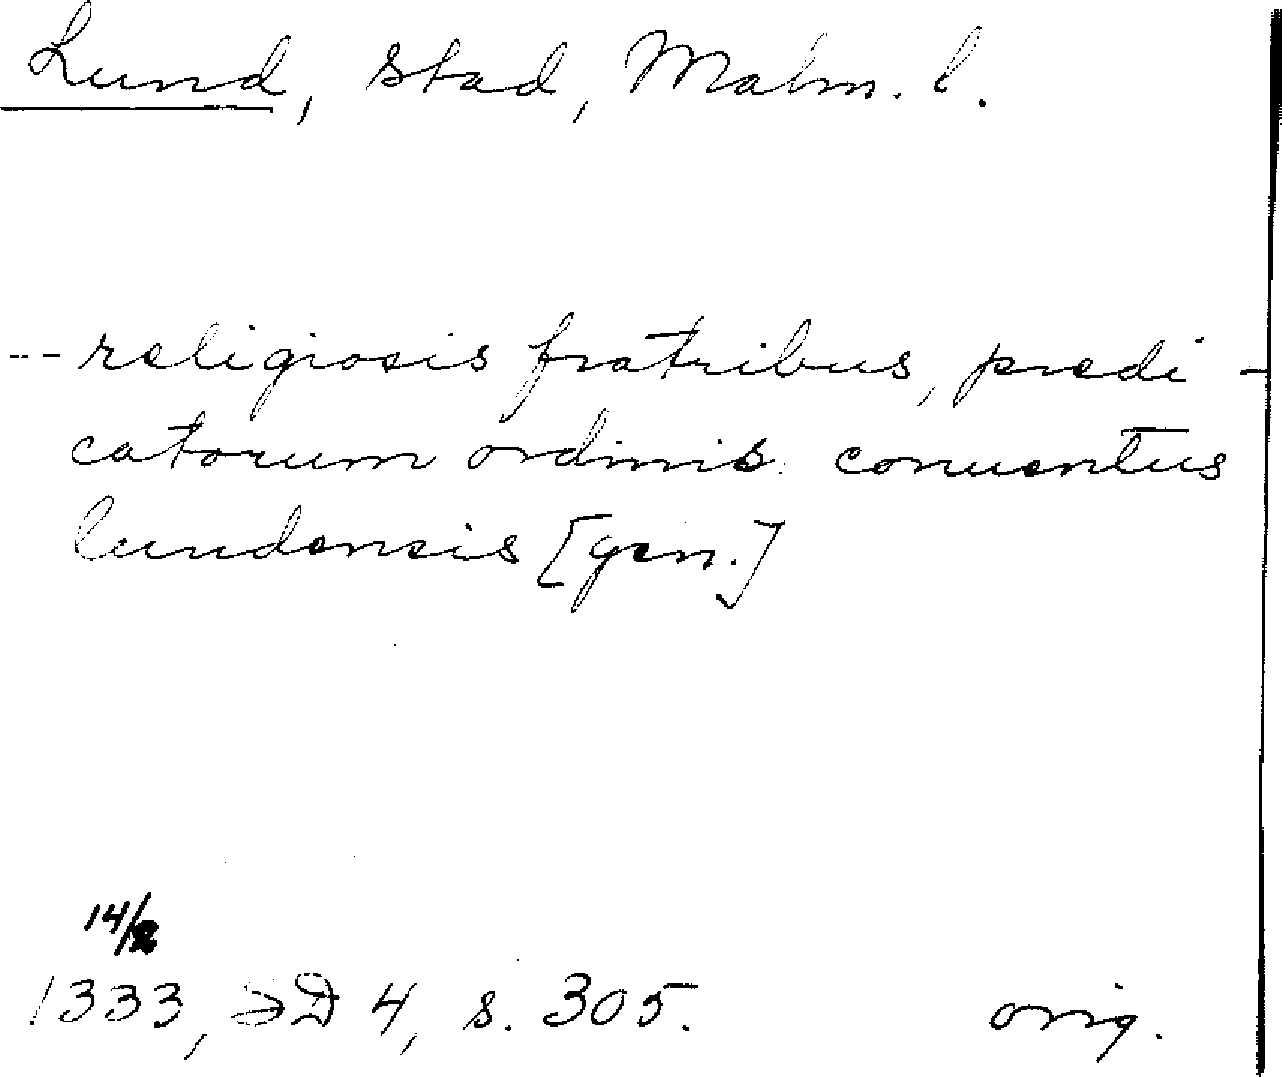 Lund, stad, Malm. l.
-- religiosis fratribus, predi-
catorum ordinis. conuentus
lundensis [gen.]
14/2
1333, SD 4, s. 305. orig.